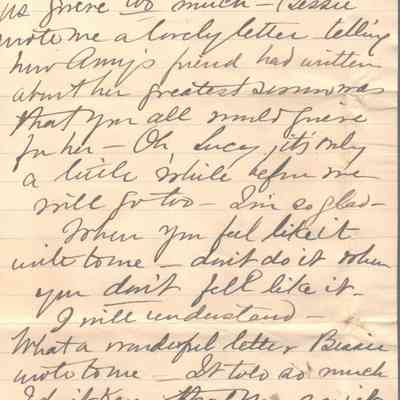 us grieve too much - (Bessie
wrote me a lovely letter telling
how Amy's friend had written
about her greatest sorrow was
that you all would grieve
for her - Oh, Lucy, it's only
a little while before we
will go too - I'm so glad -
When you feel like it
write to me - don't do it when
you don't fell like it -
I will understand -
What a wonderful letter Bessie
wrote to me - It told so much